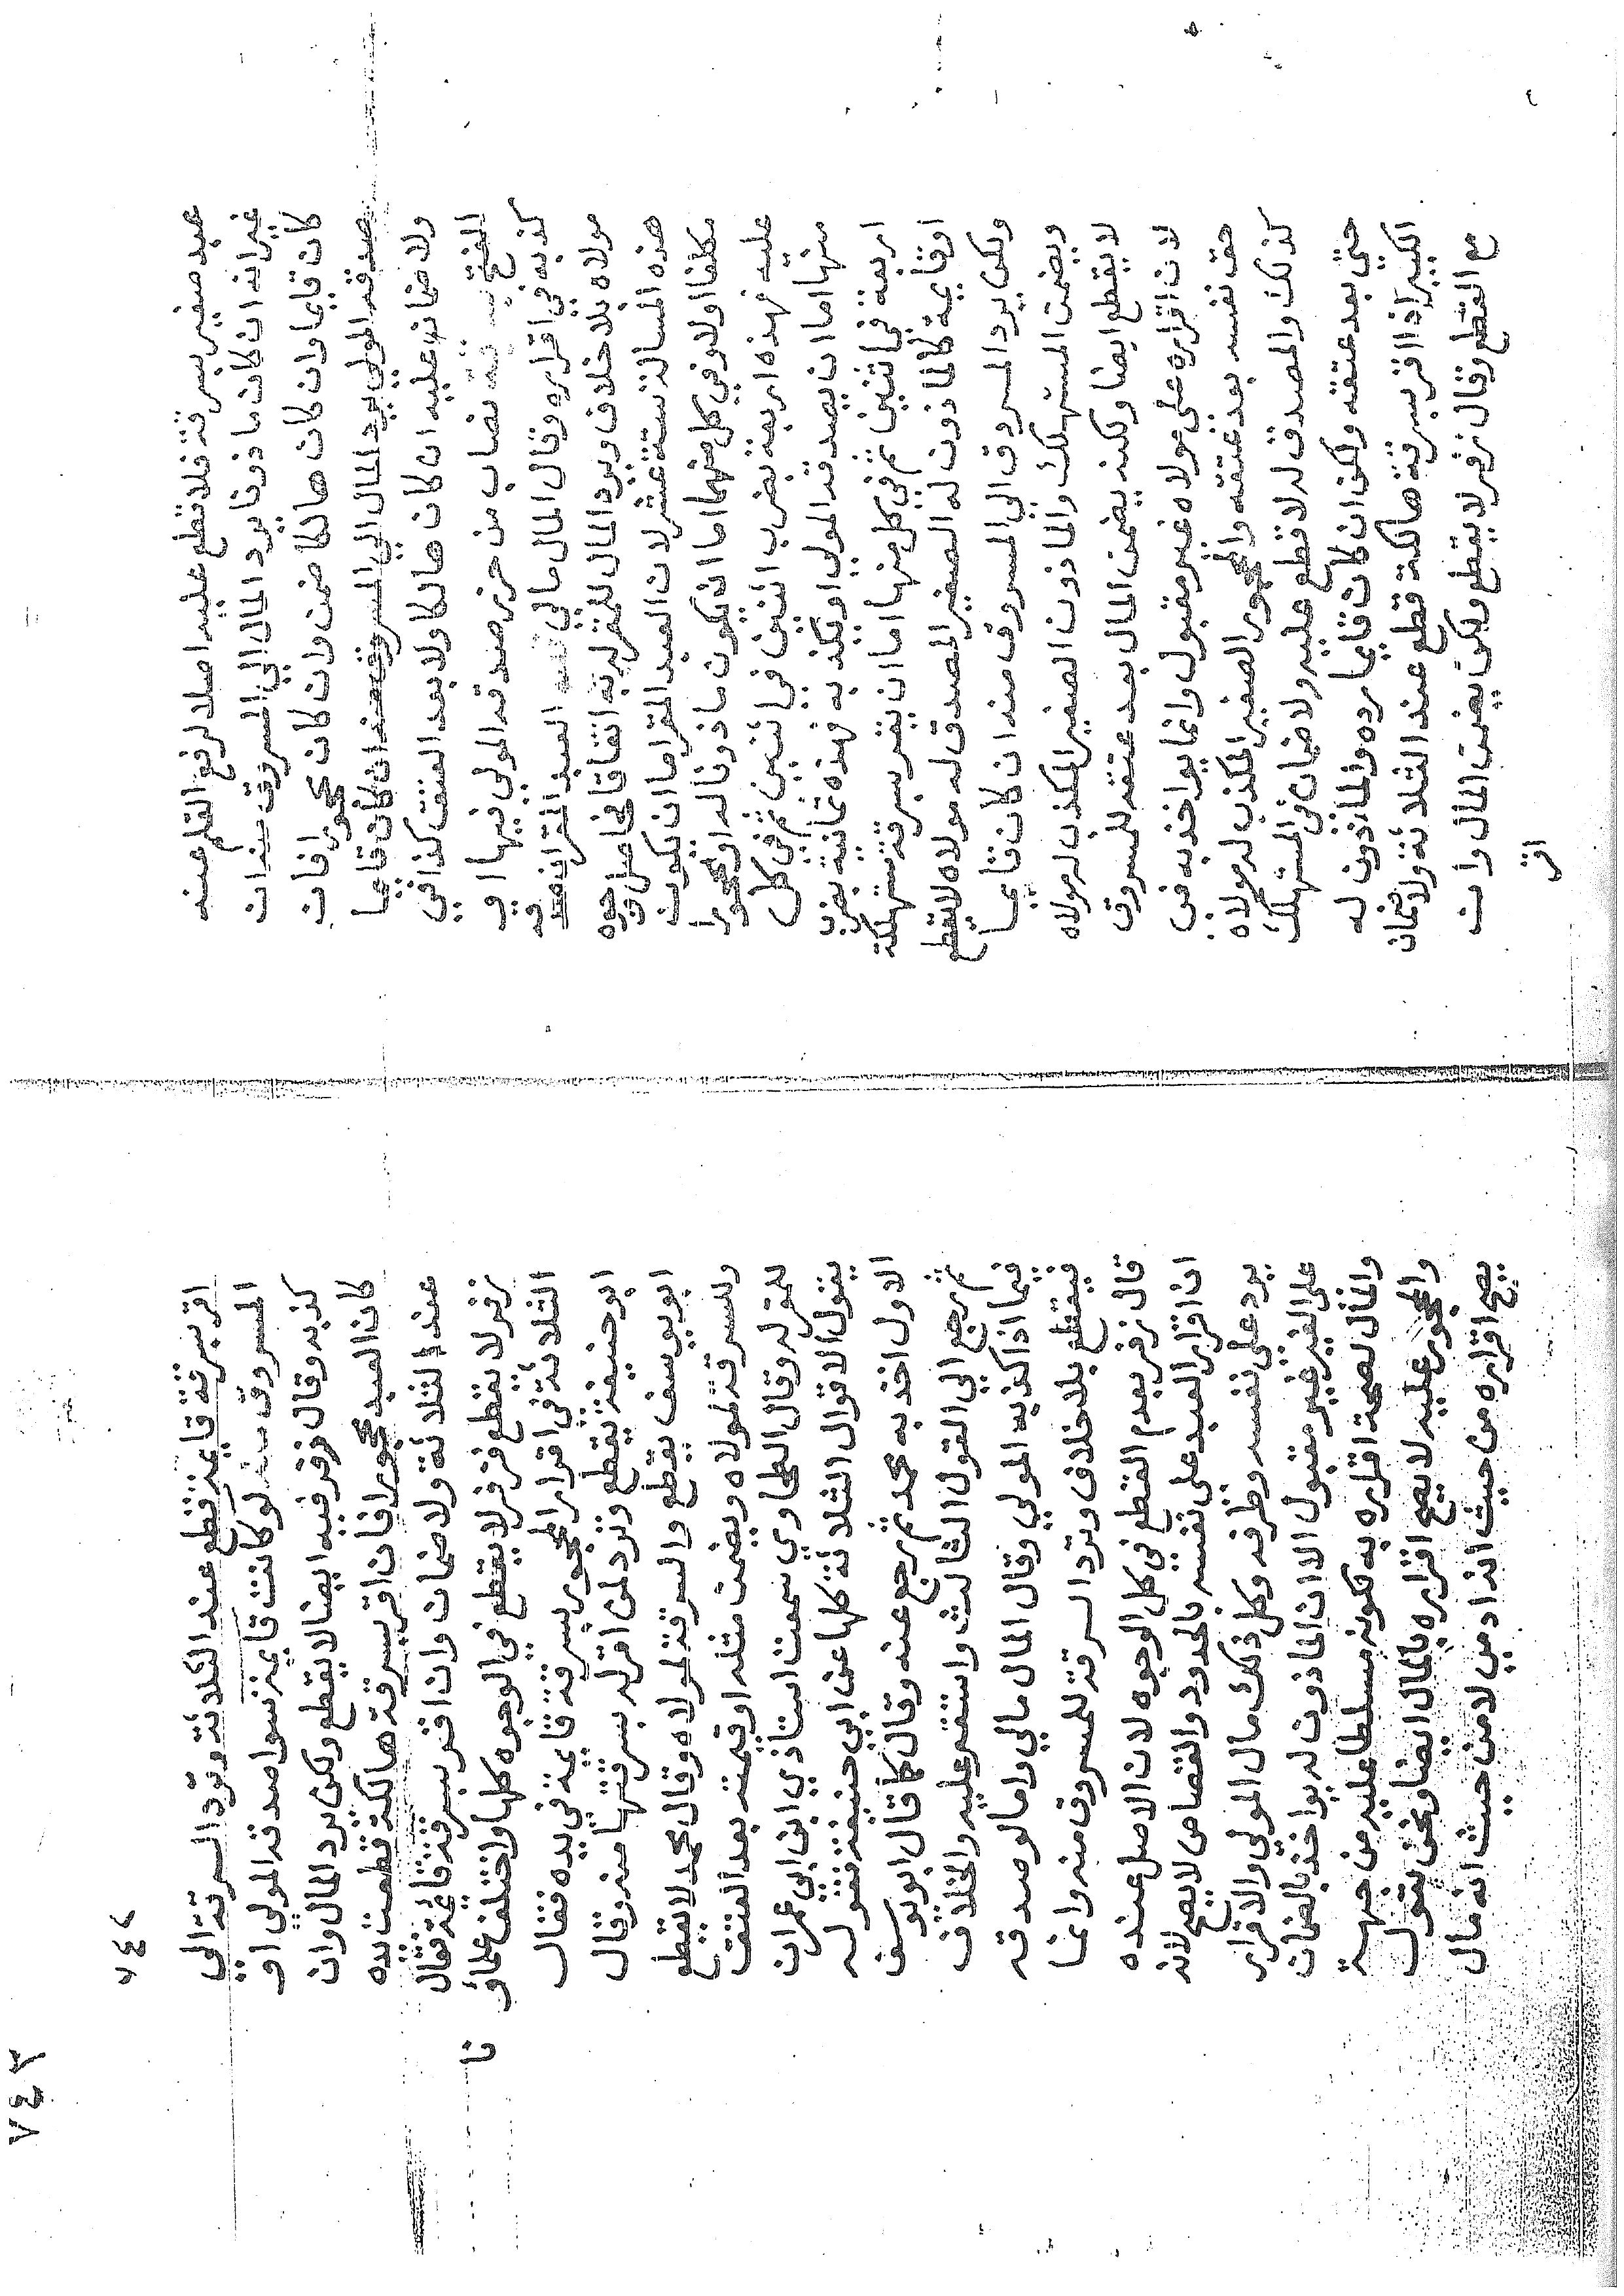 عبد صغير بسرقة فلا قطع عليه اصلا لرفع القلم عنه
غير انه ان كان ماذونا يرد المال الي المسروق منه ان
كان قايما وان كان هالكا ضمن وان كان محجورا فان
صدقه المولي يرد المال الي المسروق منه ان كان قايما
ولا ضمان عليه ان كان هالكا ولا بعد العتق كذا في
الفتح نصاب من حرز صدقه المولي فيها او
كذبه في اقراره وقال المال مالي العبد المقر
مولاه بلا خلاف ويرد المال للمقر به اتفاقا فحاصل وجوه
هذه المسالة ستة عشر لان العبد المقر اما ان يكون
مكلفا اولا وفي كل منهما اما ان يكون ماذونا له او محجورا
عليه فهذه اربعة بضرب اثنين في اثنين ثم في كل
منها اما ان يصدقه المولي او يكذبه فهذه ثمانية بضرب
اربعة في اثنين ثم في كل منها اما ان يقر بسرقة مستهلكة
او قايمة كالماذون له الصغير المصدق له مولاه لا يقطع
ولكن يرد المسروق الي المسروق منه ان كان قايما
ويضمن المستهلك والماذون الصغير المكذب له مولاه
لا يقطع ايضا ولكنه يضمن المال بعد عتقه للمسروق
لان اقراره علي مولاه غير مقبول وانما يواخذ به في
حق نفسه بعد عتقه والمحجور الصغير المكذب له مولاه
كذلك والمصدق له لا قطع عليه ولا ضمان في المستهلك
حتي بعد عتقه ولكن ان كان قايما رده والماذون له
الكبير اذا اقر بسرقة هالكة قطع عند الثلاثة ولا ضمان
مع القطع وقال زفر لا يقطع ولكن يضمن المال وان
اقر
٧٤٣
٧٤٤
اقر بسرقة قايمة قطع عند الثلاثة وترد السرقة الي
المسروق منه لو كانت قايمة سوا صدقه المولي او
كذبه وقال زفر فيه ايضا لا يقطع ولكن يرد المال وان
كان العبد محجورا فان اقر بسرقة هالكة قطعت يده
عند الثلاثة ولا ضمان وان اقر بسرقة قايمة فقال
زفر لا يقطع فزفر لا يقطع في الوجوه كلها واختلف علماؤنا
الثلاثة في اقرار المحجور بسرقة قايمة في يده فقال
ابو حنيفة يقطع وترد لمن اقر له بسرقتها منه وقال
ابو يوسف يقطع والسرقة لمولاه وقال محمد لا يقطع
والسرقة لمولاه ويضمن مثله او قيمته بعد العتق
للمقر له وقال الطحاوي سمعت استاذي ابن ابي عمران
يقول الاقوال الثلاثة كلها عن ابي حنيفة فقوله
الاول اخذ به محمد ثم رجع عنه وقال كما قال ابو يوسف
ثم رجع الي القول الثالث واستقر عليه والخلاف
فيما اذا كذبه المولي وقال المال مالي واما لو صدقه
فيقطع بلا خلاف وترد السرقة للمسروق منه وانما
قال زفر بعدم القطع في كل الوجوه لان الاصل عنده
ان اقرار العبد علي نفسه بالحدود والقصاص لا يصح لانه
يرد علي نفسه وطرفه وكل ذلك مال المولي والاقرار
علي الغير غير مقبول الا ان الماذون له يواخذ بالضمان
والمال لصحة اقراره به لكونه مسلطا عليه من جهة
والمحجور عليه لا يصح اقراره بالمال ايضا ونحن نقول
يصح اقراره من حيث انه ادمي لا من حيث انه مال